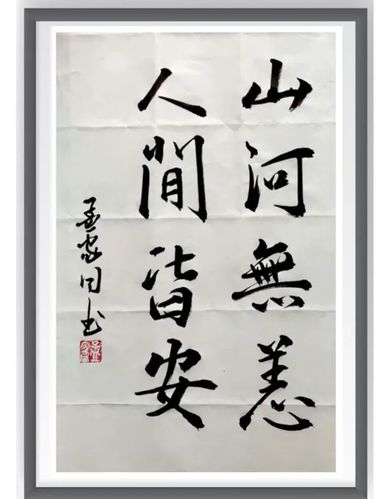 山河無恙
人間皆安
孟家同书